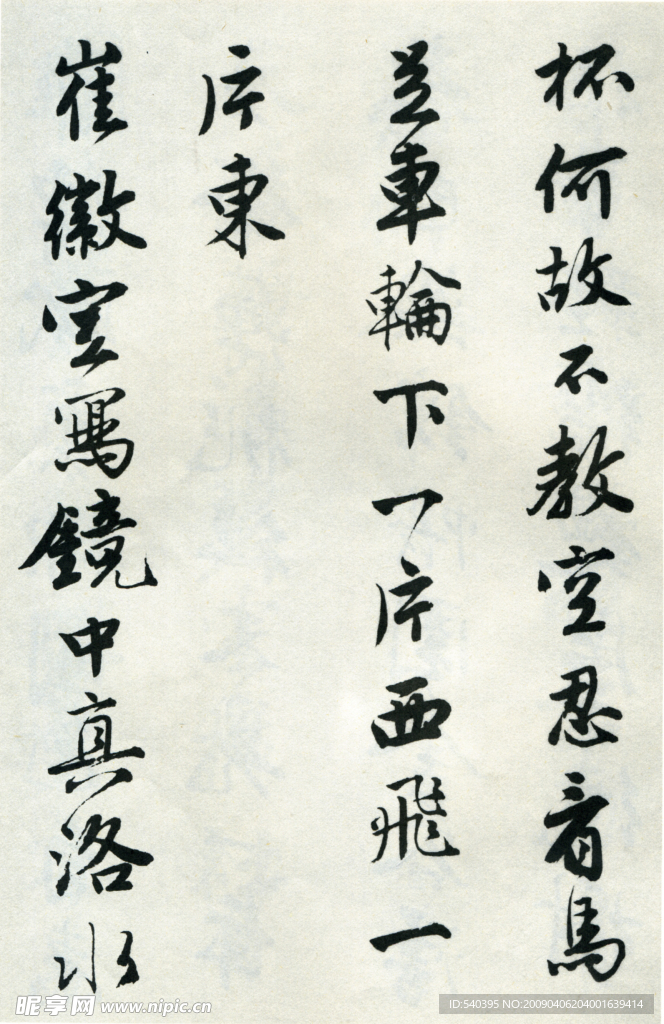 杯何故不教空忍看馬
足車輪下一片西飛一
片東
崔徽空寫鏡中真洛水
昵享网 www.nipic.cn
ID:540395 NO:20090406204001639414